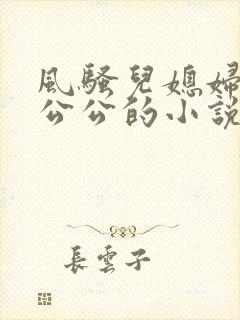 風騷兒媳婦
公公的小說
長雲子